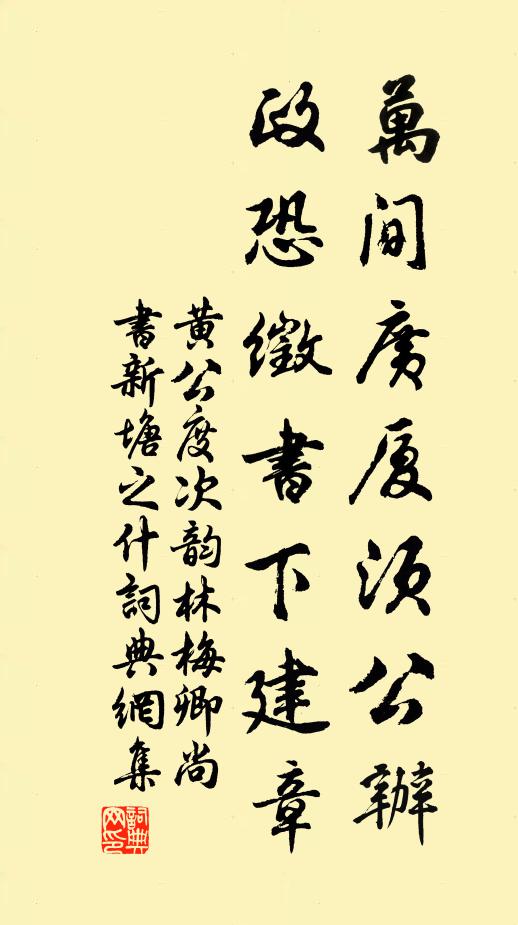 萬間廣厦須公辦
政恐徵書下建章
黄公度次韵林梅卿尚
書新塘之什詞典網集
詞典網印